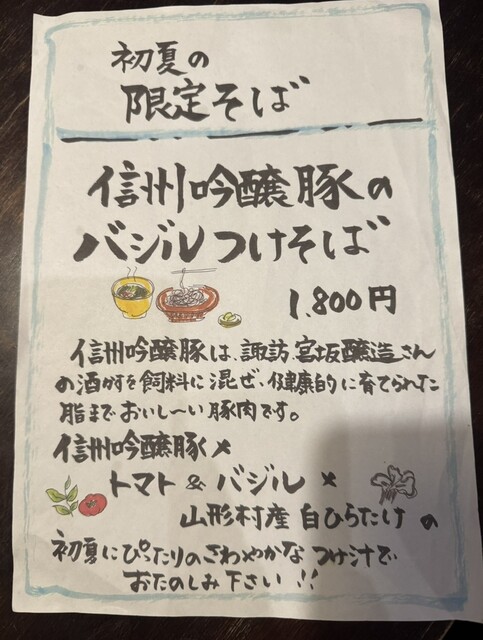 初夏の
限定そば
信州吟醸豚の
バジルつけそば
1,800円
信州吟醸豚は、諏訪、宮坂醸造さん
の酒かすを飼料に混ぜ、健康的に育てられた
脂までおいし〜い豚肉です。
信州吟醸豚×
トマト & バジル ×
山形村産 白ひらたけ の
初夏にぴったりのさわやかな つけ汁で
おたのしみ下さい !!